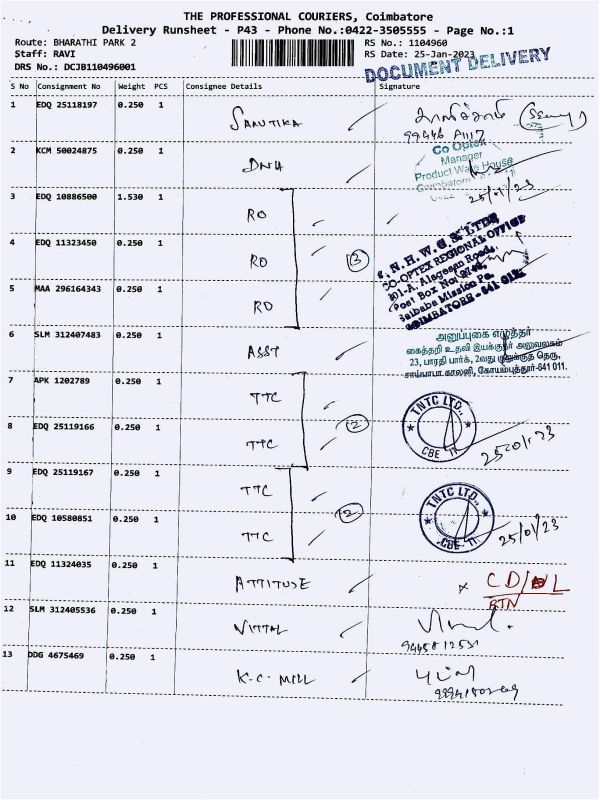 THE PROFESSIONAL COURIERS, Coimbatore
Delivery Runsheet - P43 - Phone No.:0422-3505555 - Page No.:1
Route: BHARATHI PARK 2
RS No.: 1104960
Staff: RAVI
RS Date: 25-Jan-2023
DRS No.: DCJB110496001
DOCUMENT DELIVERY
S No Consignment No Weight PCS Consignee Details Signature
1 EDQ 25118197 0.250 1 SARUTIKA
2 KCM 50024875 0.250 1 DNH
Co Optex
Manager
Product Ware House
Coimbatore
25/01/23
3 EDQ 10886500 1.530 1 RO
4 EDQ 11323450 0.250 1 RO 3
5 MAA 296164343 0.250 1 RO
CO-OPTEX REGIONAL OFFICE
201-A, Alagesan Road,
Post Box No.
Saibaba Mission Po,
COIMBATORE - 641 011.
6 SLM 312407483 0.250 1 ASST
அனுப்புகை எழுத்தர்
கைத்தறி உதவி இயக்குநர் அலுவலகம்
23, பாரதி பார்க், 2வது குறுக்குத் தெரு,
சாய்பாபா காலனி, கோயம்புத்தூர்-641 011.
7 APK 1202789 0.250 1 TTC
8 EDQ 25119166 0.250 1 TTC 2
TNTC LTD.,
CBE 11
25-01-23
9 EDQ 25119167 0.250 1 TTC
10 EDQ 10580851 0.250 1 TTC 2
TNTC LTD.,
CBE. 11
25/01/23
11 EDQ 11324035 0.250 1 ATTITUDE x CD/
RTN
12 SLM 312405536 0.250 1 VITTAL
13 DDG 4675469 0.250 1 K.C. MILL